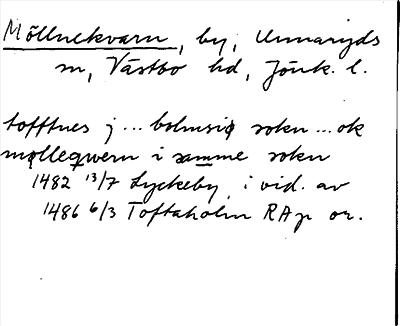 Möllnekvarn, by, Unnaryds
sn, Västbo hd, Jönk. l.
tofftnes j ... bolmsiø sokn ... ok
mølleqwern i samme sokn
1482 13/7 Lyckeby, i vid. av
1486 6/3 Toftaholm RAp or.